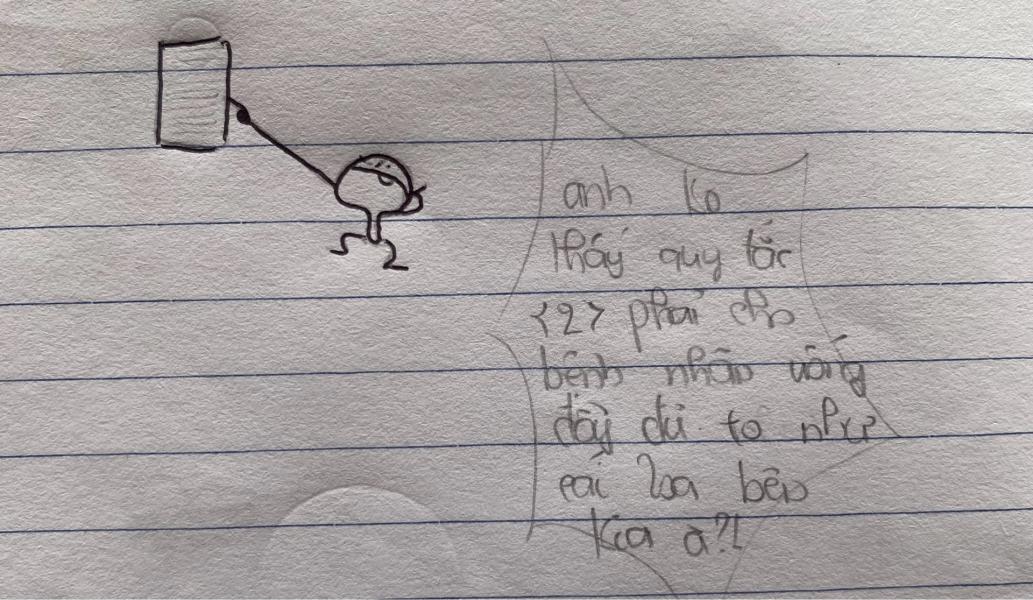 anh ko
thấy quy tắc
<2> phải cho
bệnh nhân uống
đầy đủ to như
cái loa bên
kia à?!